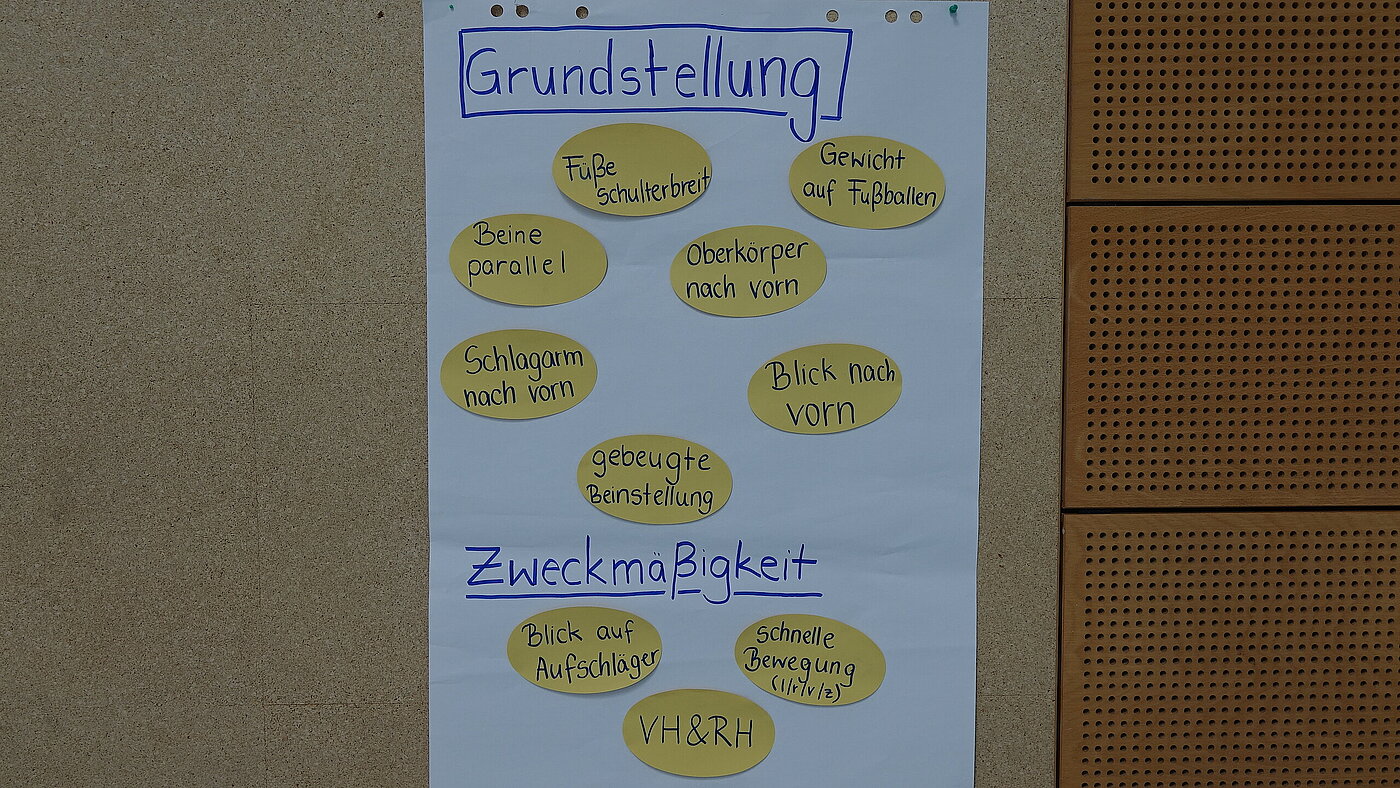 Grundstellung
Füße
schulterbreit
Gewicht
auf Fußballen
Beine
parallel
Oberkörper
nach vorn
Schlagarm
nach vorn
Blick nach
vorn
gebeugte
Beinstellung
Zweckmäßigkeit
Blick auf
Aufschläger
schnelle
Bewegung
(l/r/v/z)
VH&RH